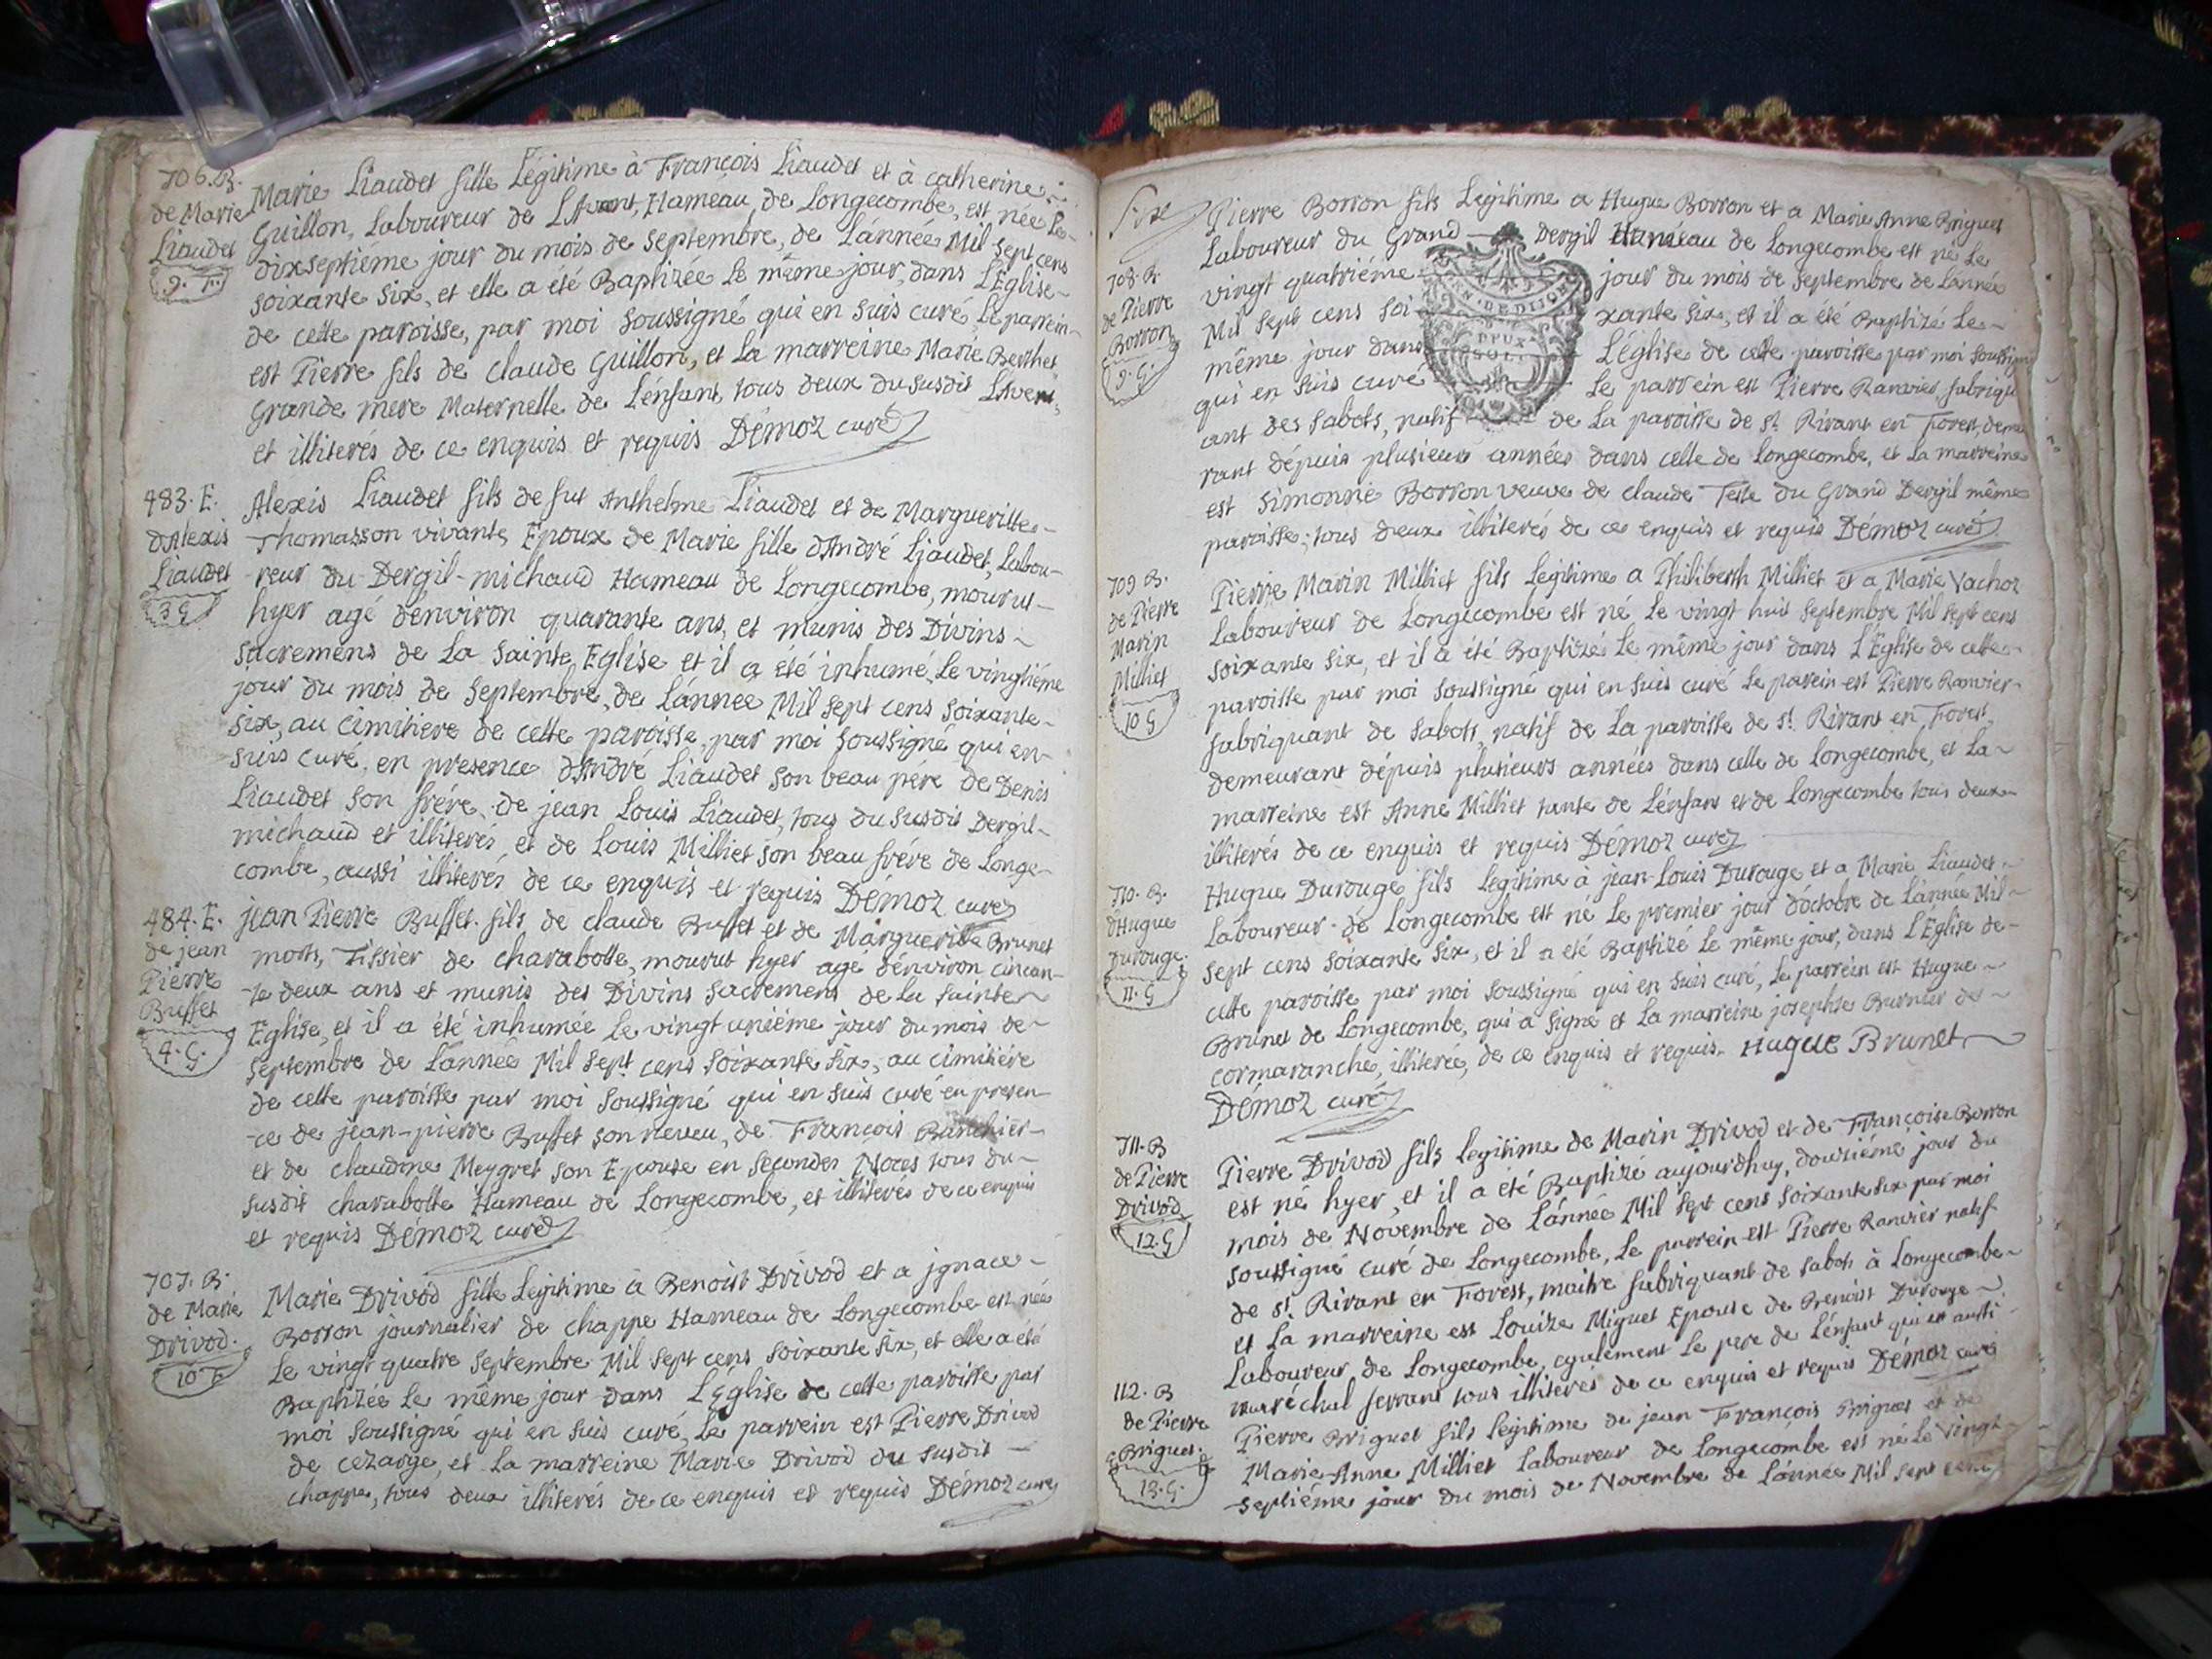 706. B.
de Marie
Liaudet
9. F.
Marie Liaudet fille Légitime à François Liaudet et à catherine
Guillon, Laboureur de L'Avent, Hameau de Longecombe, est née Le
dixseptiéme jour du mois de septembre, de L'année Mil sept cens
soixante six, et elle a été Baptizée Le même jour, dans L'Eglise
de cette paroisse, par moi soussigné qui en suis curé, Le parrein
est Pierre fils de claude Guillon, et La marreine Marie Berthet
Grande mere Maternelle de L'énfant, tous deux du susdit L'Avent,
et illiterés de ce enquis et requis Démoz curé
483. E.
d'Alexis
Liaudet
3 G
Alexis Liaudet fils de fut Anthelme Liaudet et de Margueritte
Thomasson vivante, Epoux de Marie fille d'André Liaudet, Labou-
reur du Dergil-michaud Hameau de Longecombe, mourut
hyer agé d'environ quarante ans, et munis des Divins
sacremens de La sainte Eglise et il a été inhumé, Le vingtiéme
jour du mois de septembre, de L'année Mil sept cens soixante
six, au cimitiere de cette paroisse, par moi soussigné qui en
suis curé, en presence d'André Liaudet son beau pére de Denis
Liaudet son frére, de jean Louis Liaudet, tous du susdit Dergil-
michaud et illiterés, et de Louis Milliet son beau frére de Longe-
combe, aussi illiterés de ce enquis et requis Démoz curé
484. E.
de jean
Pierre
Buffet
4. G.
jean Pierre Buffet fils de claude Buffet et de Margueritte Brunet
morts, Tissier de charabotte, mourut hyer agé d'énviron cincan-
te deux ans et munis des Divins sacremens de La sainte
Eglise, et il a été inhumée Le vingt uniéme jour du mois de
septembre de L'année Mil sept cens soixante six, au cimitiére
de cette paroisse par moi soussigné qui en suis curé en presen-
ce de jean-pierre Buffet son neveu, de François
et de claudine Meygret son Epouse en secondes Noces tous du
susdit charabotte Hameau de Longecombe, et illiterés de ce enquis
et requis Démoz curé
707. B.
de Marie
Drivod.
10 F
Marie Drivod fille Legitime à Benoist Drivod et a jgnace
Borron journalier de chappe Hameau de Longecombe est née
Le vingt quatre septembre Mil sept cens soixante six, et elle a été
Baptizée Le même jour dans L'Eglise de cette paroisse par
moi soussigné qui en suis curé, Le parrein est Pierre Drivod
de cezarge, et La marreine Marie Drivod du susdit
chappe, tous deux illiterés de ce enquis et requis Démoz curé
708. B.
de Pierre
Borron
9. G.
Pierre Borron fils Legitime a Hugue Borron et a Marie Anne Briguet
Laboureur du Grand Dergil Hameau de Longecombe est né Le
vingt quatriéme jour du mois de septembre de L'année
Mil sept cens soixante six, et il a été Baptizé Le
même jour dans L'église de cette paroisse par moi soussigné
qui en suis curé Le parrein est Pierre Ranvier, fabriqu
ant des sabots, natif de La paroisse de st. Rirant en Forest, demeu
rant dépuis plusieurs années dans celle de Longecombe, et La marreine
est simonne Borron veuve de claude Teste du Grand Dergil même
paroisse, tous deux illiterés de ce enquis et requis Démoz curé
709 B.
de Pierre
Marin
Milliet
10 G
Pierre Marin Milliet fils Legitime a Philiberth Milliet et a Marie Vachoz
Laboureur de Longecombe est né Le vingt huit septembre Mil sept cens
soixante six, et il a été Baptizé Le même jour dans L'Eglise de cette
paroisse par moi soussigné qui en suis curé Le parein est Pierre Ranvier
fabriquant de sabots natif de La paroisse de st. Rirant en Forest,
demeurant dépuis plusieurs années dans celle de Longecombe, et La
marreine est Anne Milliet tante de L'énfant et de Longecombe tous deux
illiterés de ce enquis et requis Démoz curé
710. B.
d'Hugue
Durouge.
11. G
Hugue Durouge fils Legitime à jean-Louis Durouge et a Marie Liaudet
Laboureur de Longecombe est né Le premier jour d'octobre de L'année Mil
sept cens soixante six, et il a été Baptizé Le même jour, dans L'Eglise de
cette paroisse par moi soussigné qui en suis curé, Le parrein est Hugue
Brunet de Longecombe, qui a signé et La marreine josephte Burnier de
cormaranche, illiterée, de ce enquis et requis. Hugue Brunet
Démoz curé
711. B
de Pierre
Drivod
12. G
Pierre Drivod fils Legitime de Marin Drivod et de Françoise Borron
est né hyer, et il a été Baptizé aujourdhuy, douziéme jour du
mois de Novembre de L'année Mil sept cens soixante six par moi
soussigné curé de Longecombe, Le parrein est Pierre Ranvier natif
de st. Rirant en Forest, maitre fabriquant de sabots à Longecombe
et La marreine est Louize Miguet Epouse de Benoist Durouge
Laboureur de Longecombe, egalement Le pere de L'énfant qui est aussi
maréchal ferrant tous illiteres de ce enquis et requis Démoz curé
112. B
de Pierre
Briguet.
13. G.
Pierre Briguet fils Legitime de jean François Briguet et de
Marie-Anne Milliet Laboureur de Longecombe est né Le vingt
septiéme jour du mois de Novembre de L'année Mil sept cens